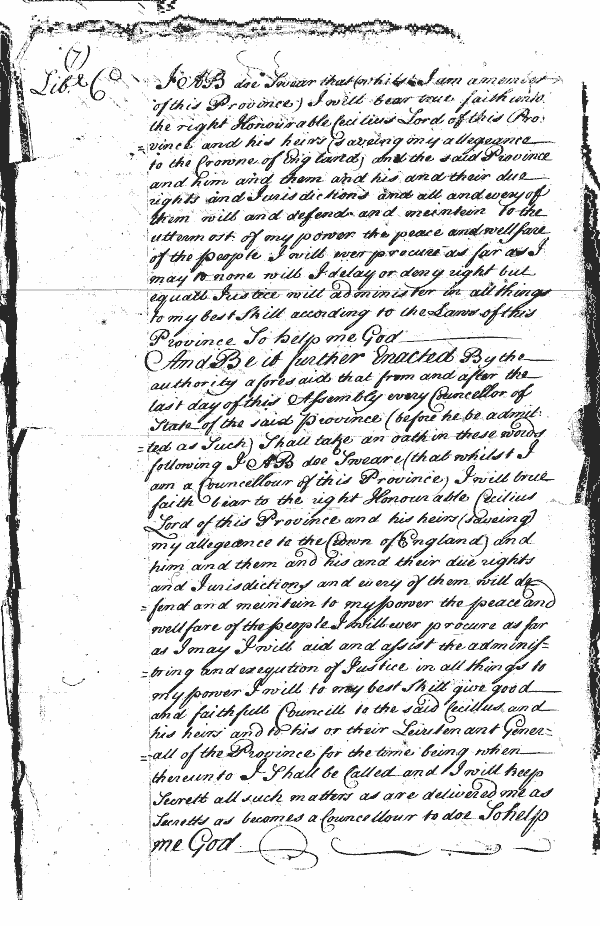 (7)
Libr C°
I AB doe Swear that (whilst I am a member
of this Province) I will bear true faith unto
the right Honourable Cecilius Lord of this Pro:
=vince and his heirs (saveing my allegeance
to the Crowne of England) and the said Province
and him and them and his and their due
rights and Jurisdictions and all and every of
them will and defend and meintein to the
uttermost of my power the peace and wellfare
of the people I will ever procure as far as I
may to none will I delay or deny right but
equall Justice will administer in all things
to my best skill according to the Laws of this
Province So help me God
And Be it further Enacted By the
authority aforesaid that from and after the
last day of this Assembly every Councellor of
State of the said Province (before he be admit:
=ted as Such) Shall take an oath in these words
following I AB doe Sweare (that whilst I
am a Councellour of this Province) I will true
faith bear to the right Honourable Cecilius
Lord of this Province and his heirs (saveing)
my allegeance to the Crown of England) and
him and them and his and their due rights
and Jurisdictions and every of them will de=
=fend and meintein to my power the peace and
wellfare of the people I will ever procure as far
as I may I will aid and assist the adminis=
=tring and exeqution of Justice in all things to
my power I will to my best skill give good
and faithfull Councill to the said Cecilius and
his heirs and to his or their Leiutenant Gener=
=all of the Province for the time being when
thereunto I Shall be Called and I will keep
Secrett all such matters as are delivered me as
Secretts as becomes a Councellour to doe So help
me God